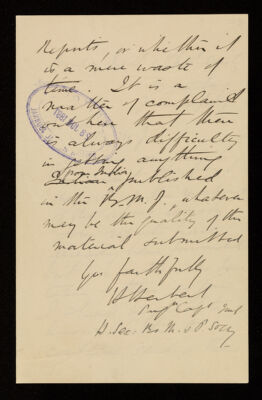 Reports, or whether it
is a mere waste of
time. It is a
matter of complaint
out here that there
is always difficulty
in getting anything
from India
published
in the B.M.J., whatever
may be the quality of the
material submitted
Yrs faithfully
H Herbert
H. Sec: Bo M. & P. Socy